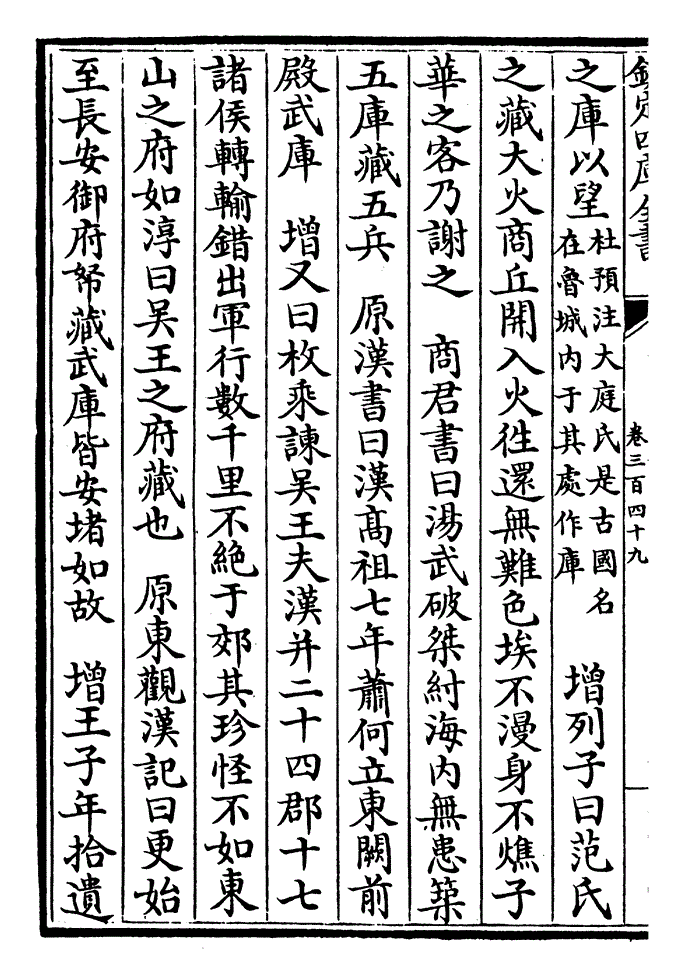 欽定四庫全書
卷三百四十九
之庫以望杜預注大庭氏是古國名在魯城内于其處作庫　增列子曰范氏
之藏大火商丘開入火徃還無難色埃不漫身不燋子
華之客乃謝之　商君書曰湯武破桀紂海内無患築
五庫藏五兵　原漢書曰漢髙祖七年蕭何立東闕前
殿武庫　增又曰枚乘諫吴王夫漢并二十四郡十七
諸侯轉輸錯出軍行數千里不絶于郊其珍怪不如東
山之府如淳曰吴王之府藏也　原東觀漢記曰更始
至長安御府帑藏武庫皆安堵如故　增王子年拾遺